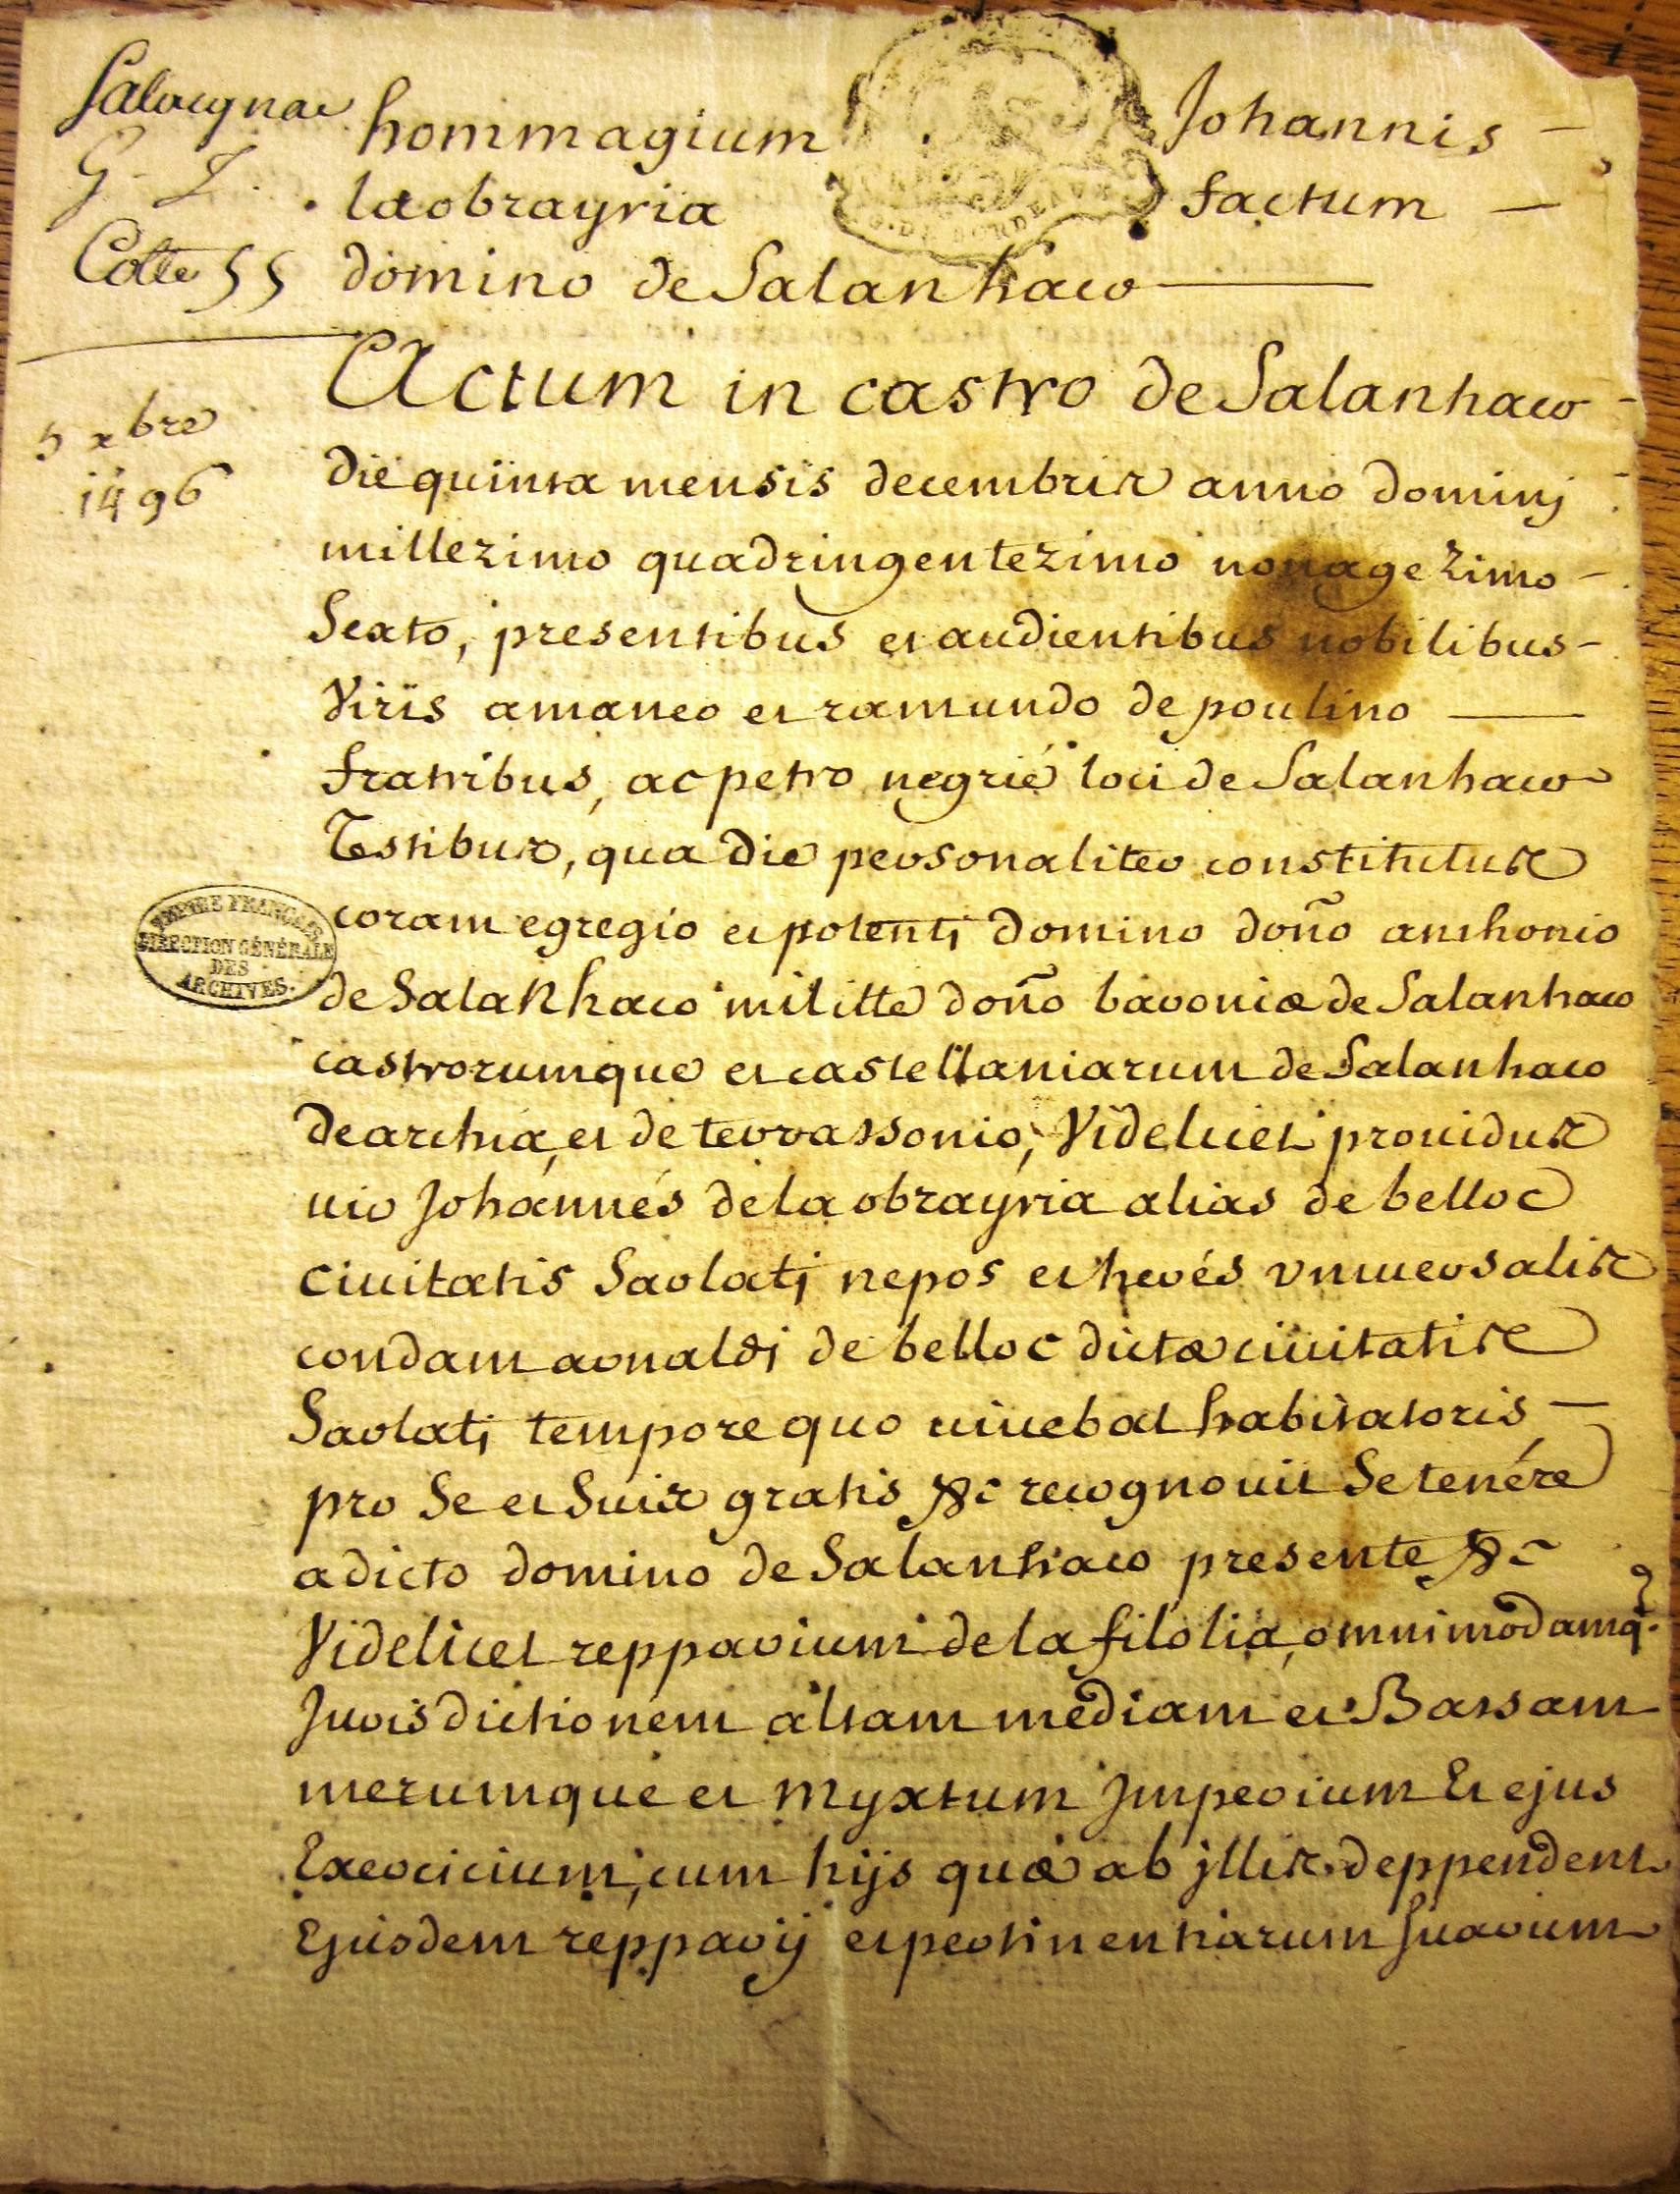 Salaignac
G. I.
Cotte 55
hommagium Johannis
laobrayria factum
domino de Salanhaco
5 xbre
1496
Actum in castro de Salanhaco
die quinta mensis decembris anno dominj
millezimo quadringentezimo nonagezimo
Sexto, presentibus et audientibus nobilibus
Viris amaneo et ramundo de poulino
fratribus, ac petro negrié loci de Salanhaco
Testibus, qua die personaliter constitutus
coram egregio et potentj domino doño anthonio
de Salanhaco militte doño baroniæ de Salanhaco
castrorumque et castellaniarum de Salanhaco
de archia, et de terrassonio, Videlicet prouidus
uir Johannés de la obrayria alias de belloc
ciuitatis Sarlatj nepos et herés vniuersalis
condam arnaldj de belloc dictæ ciuitatis
Sarlatj tempore quo uiuebat habitatoris
pro Se et Suis gratis &c recognouit Se tenére
a dicto domino de Salanhaco presente &c
Videlicet reppavium de la filolia, omnimodamq.
Jurisdictionem altam mediam et Bassam
merumque et myxtum Jmperium Et ejus
Exercicium, cum hijs quæ ab jllis deppendent
Ejusdem reppavij et pertinentiarum Suarum
G. DE BORDEAUX
EMPIRE FRANÇAIS
DIRECTION GÉNÉRALE
DES
ARCHIVES.